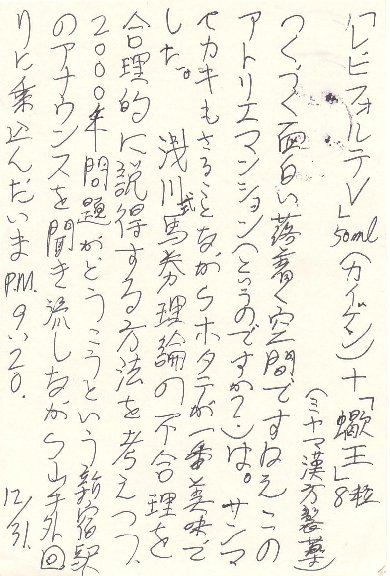 「レビフォルテV」50ml(カイゲン)+「蠍王」8粒
(ミヤマ漢方製薬)
つくづく面白い落書く空間ですねえこの
アトリエマンション(というのですか?)は。サンマ
もカキもさることながらホタテが一番美味で
した。浅川式馬券理論の不合理を
合理的に説得する方法を考えつつ、
2000年問題がどうこうという新宿駅
のアナウンスを聞き流しながら山手外回
りに乗込んだいまP.M.9:20.
12/31.